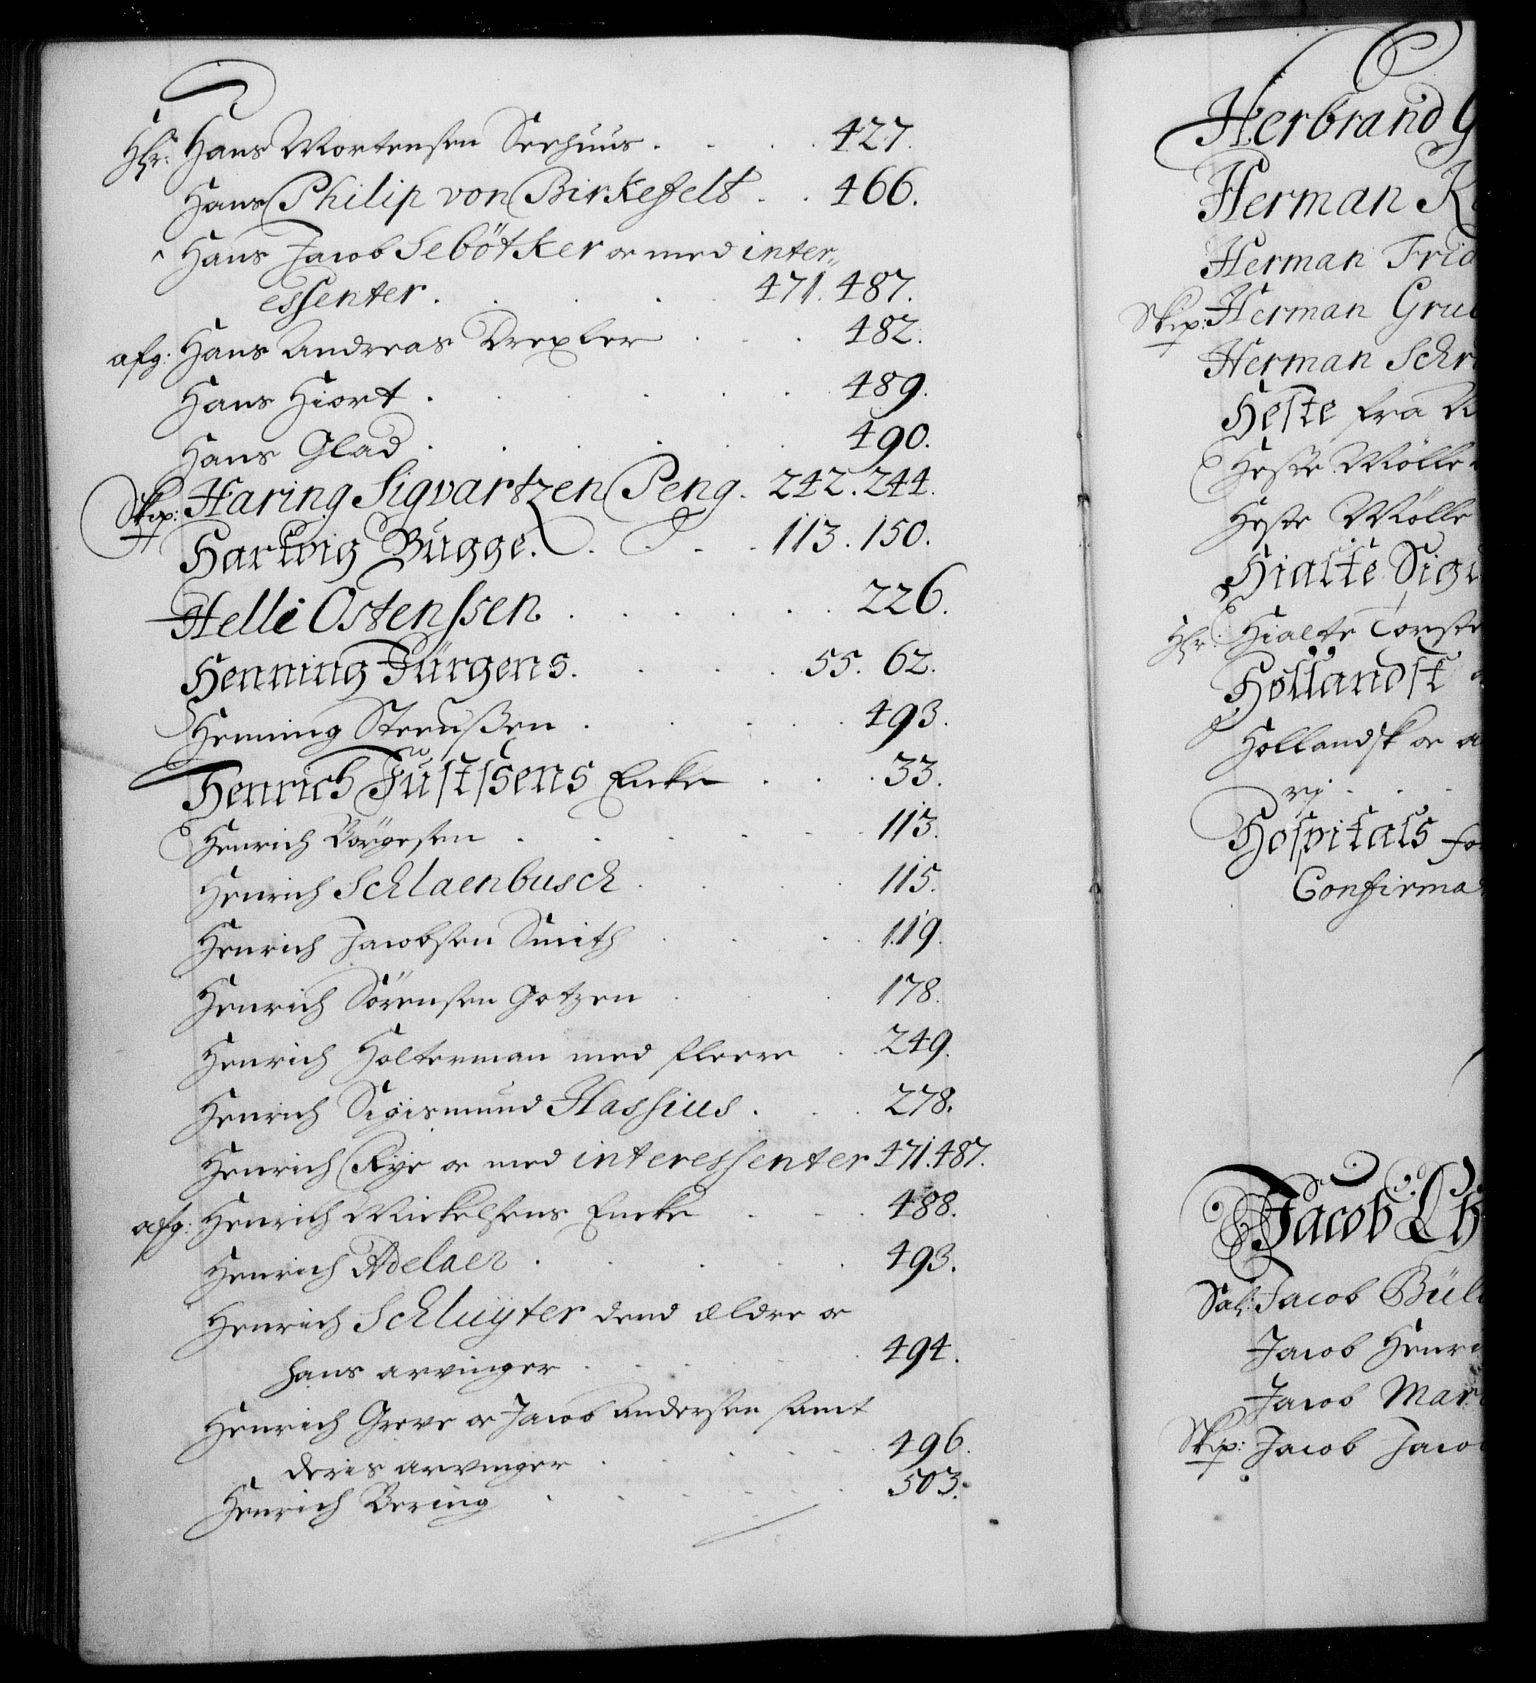 Hr: Hans Mortensen Seehuus. 427.
Hans Philip von Birkefelt. 466.
Hans Jacob Sebötker oc med inter„
essenter. 471. 487.
afg: Hans Andreas Drexler 482.
Hans Hiort. 489.
Hans Glad. 490.
Skip: Haring Sigvartzen Peng. 242. 244.
Hartvig Bugge. 113. 150.
Helle Ostenssen. 226.
Henning Jürgens. 55. 62.
Henning Steenssen. 493.
Henrich Justsens Encke 33.
Henrich Börgesen 113.
Henrich Schlaenbusch. 115.
Henrich Jacobsen Smith 119.
Henrich Sörensen Gotzen 178.
Henrich Holterman med fleere 249.
Henrich Sigismund Hassius. 278.
Henrich Rye oc med interessenter 471. 487.
afg: Henrich Mickelsens Encke 488.
Henrich Adelaer. 493.
Henrich Schluyter dend ældre oc
hans arvinger 494.
Henrich Greve oc Jacob Andersen samt
deris arvinger 496.
Henrich Bering 503.
Herbrand G
Herman K
Herman Frid
Skip: Herman Gru
Herman Schr
Heste fra
Heste Mölle
Heste Mölle
Hialte Sig
Hr: Hialte Torste
Hollandsk
Hollandsk oc a
rj
Hospitals fo
Confirma
Jacob Ch
Sal: Jacob Bül
Jacob Henr
Jacob Mar
Skip: Jacob Jaco